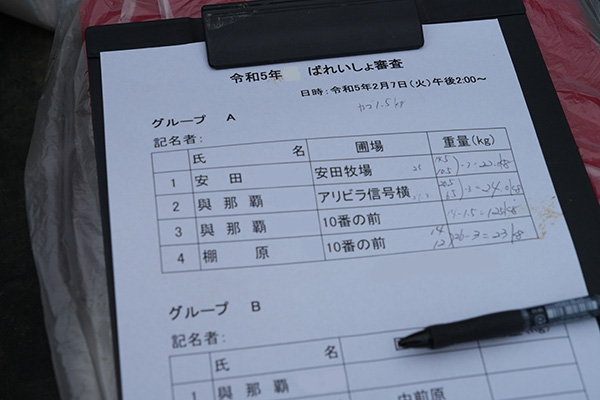 令和5年 ばれいしょ審査
日時：令和5年2月7日(火)午後2:00～
カゴ1.5kg
グループ A
記名者：
氏 名 圃場 重量(kg)
1 安 田 安田牧場
2 與 那 覇 アリビラ信号横
3 與 那 覇 10番の前 14-1.5=12.5kg
4 棚 原 10番の前 14 12 26-3=23kg
グループ B
記名者：
氏 名
1 與 那 覇 中前原